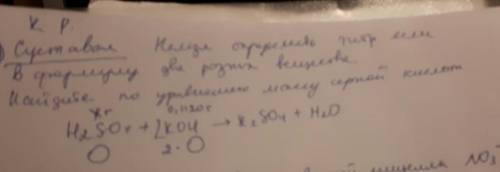 К. Р.
Нельзя определить титр если
В формулу два разных вещества
Найдите по уравнению массу серной кислоты
xг 0,1120г
H2SO4 + 2KOH → K2SO4 + H2O
2·
NO3